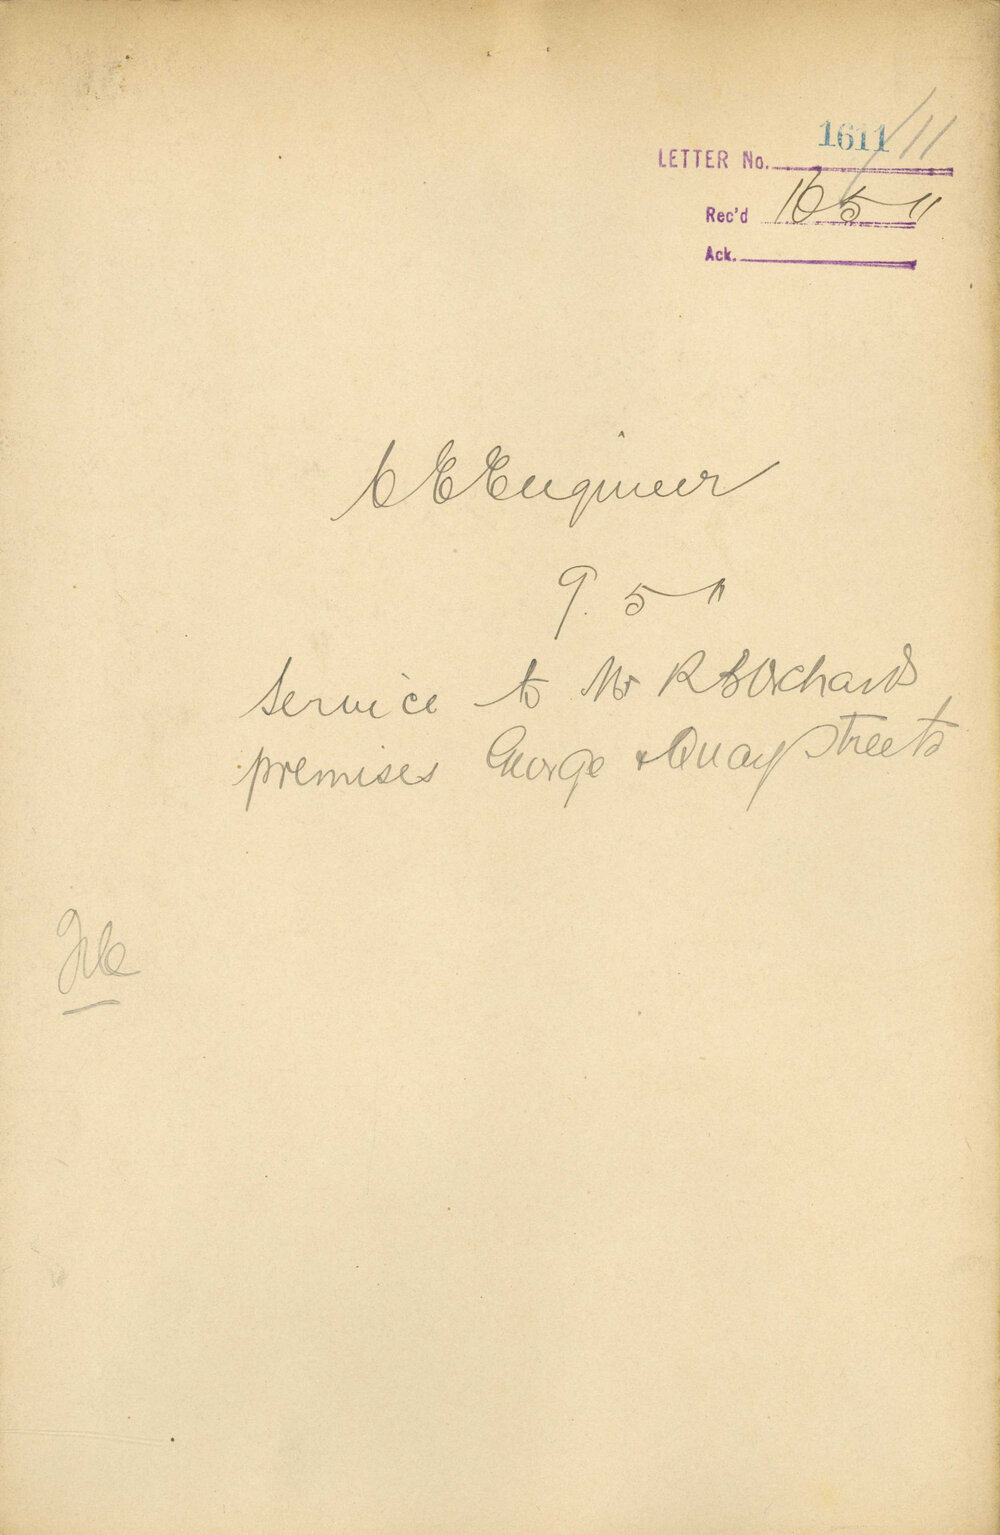 LETTER No. 1611/11
Rec'd 16 5 11
Ack.
C E Engineer
9. 5 11
Service to Mr R B Orchards
premises George & Quay Streets
File